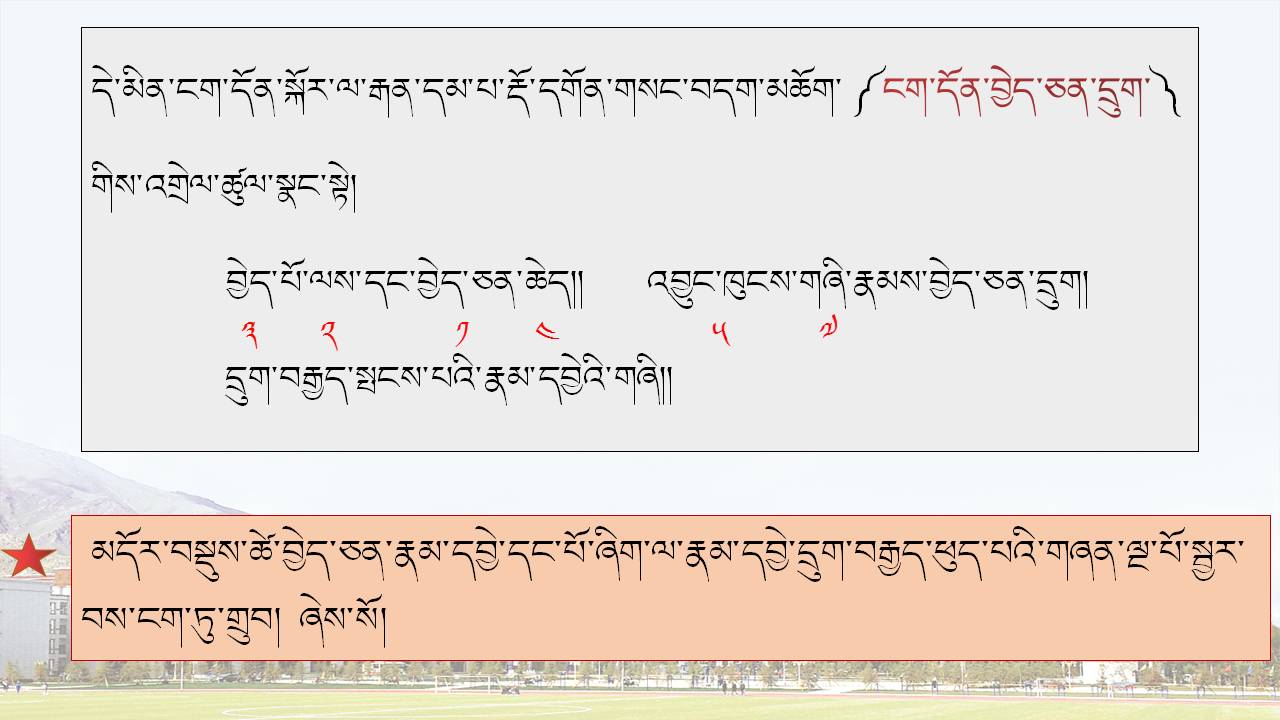 དེ་མིན་ངག་དོན་སྐོར་ལ་རྒན་དམ་པ་རྡོ་དགོན་གསང་བདག་མཆོག་ ༼ངག་དོན་བྱེད་ཅན་དྲུག་༽
གིས་འགྲེལ་ཚུལ་སྣང་སྟེ།
བྱེད་པོ་ལས་དང་བྱེད་ཅན་ཆེད།། འབྱུང་ཁུངས་གཞི་རྣམས་བྱེད་ཅན་དྲུག།
༣ ༢ ༡ ༤ ༥ ༧
དྲུག་བརྒྱད་སྤངས་པའི་རྣམ་དབྱེའི་གཞི།།
མདོར་བསྡུས་ཚེ་བྱེད་ཅན་རྣམ་དབྱེ་དང་པོ་ཞིག་ལ་རྣམ་དབྱེ་དྲུག་བརྒྱད་ཕུད་པའི་གཞན་ལྔ་པོ་སྦྱར་
བས་ངག་ཏུ་གྲུབ། ཞེས་སོ།